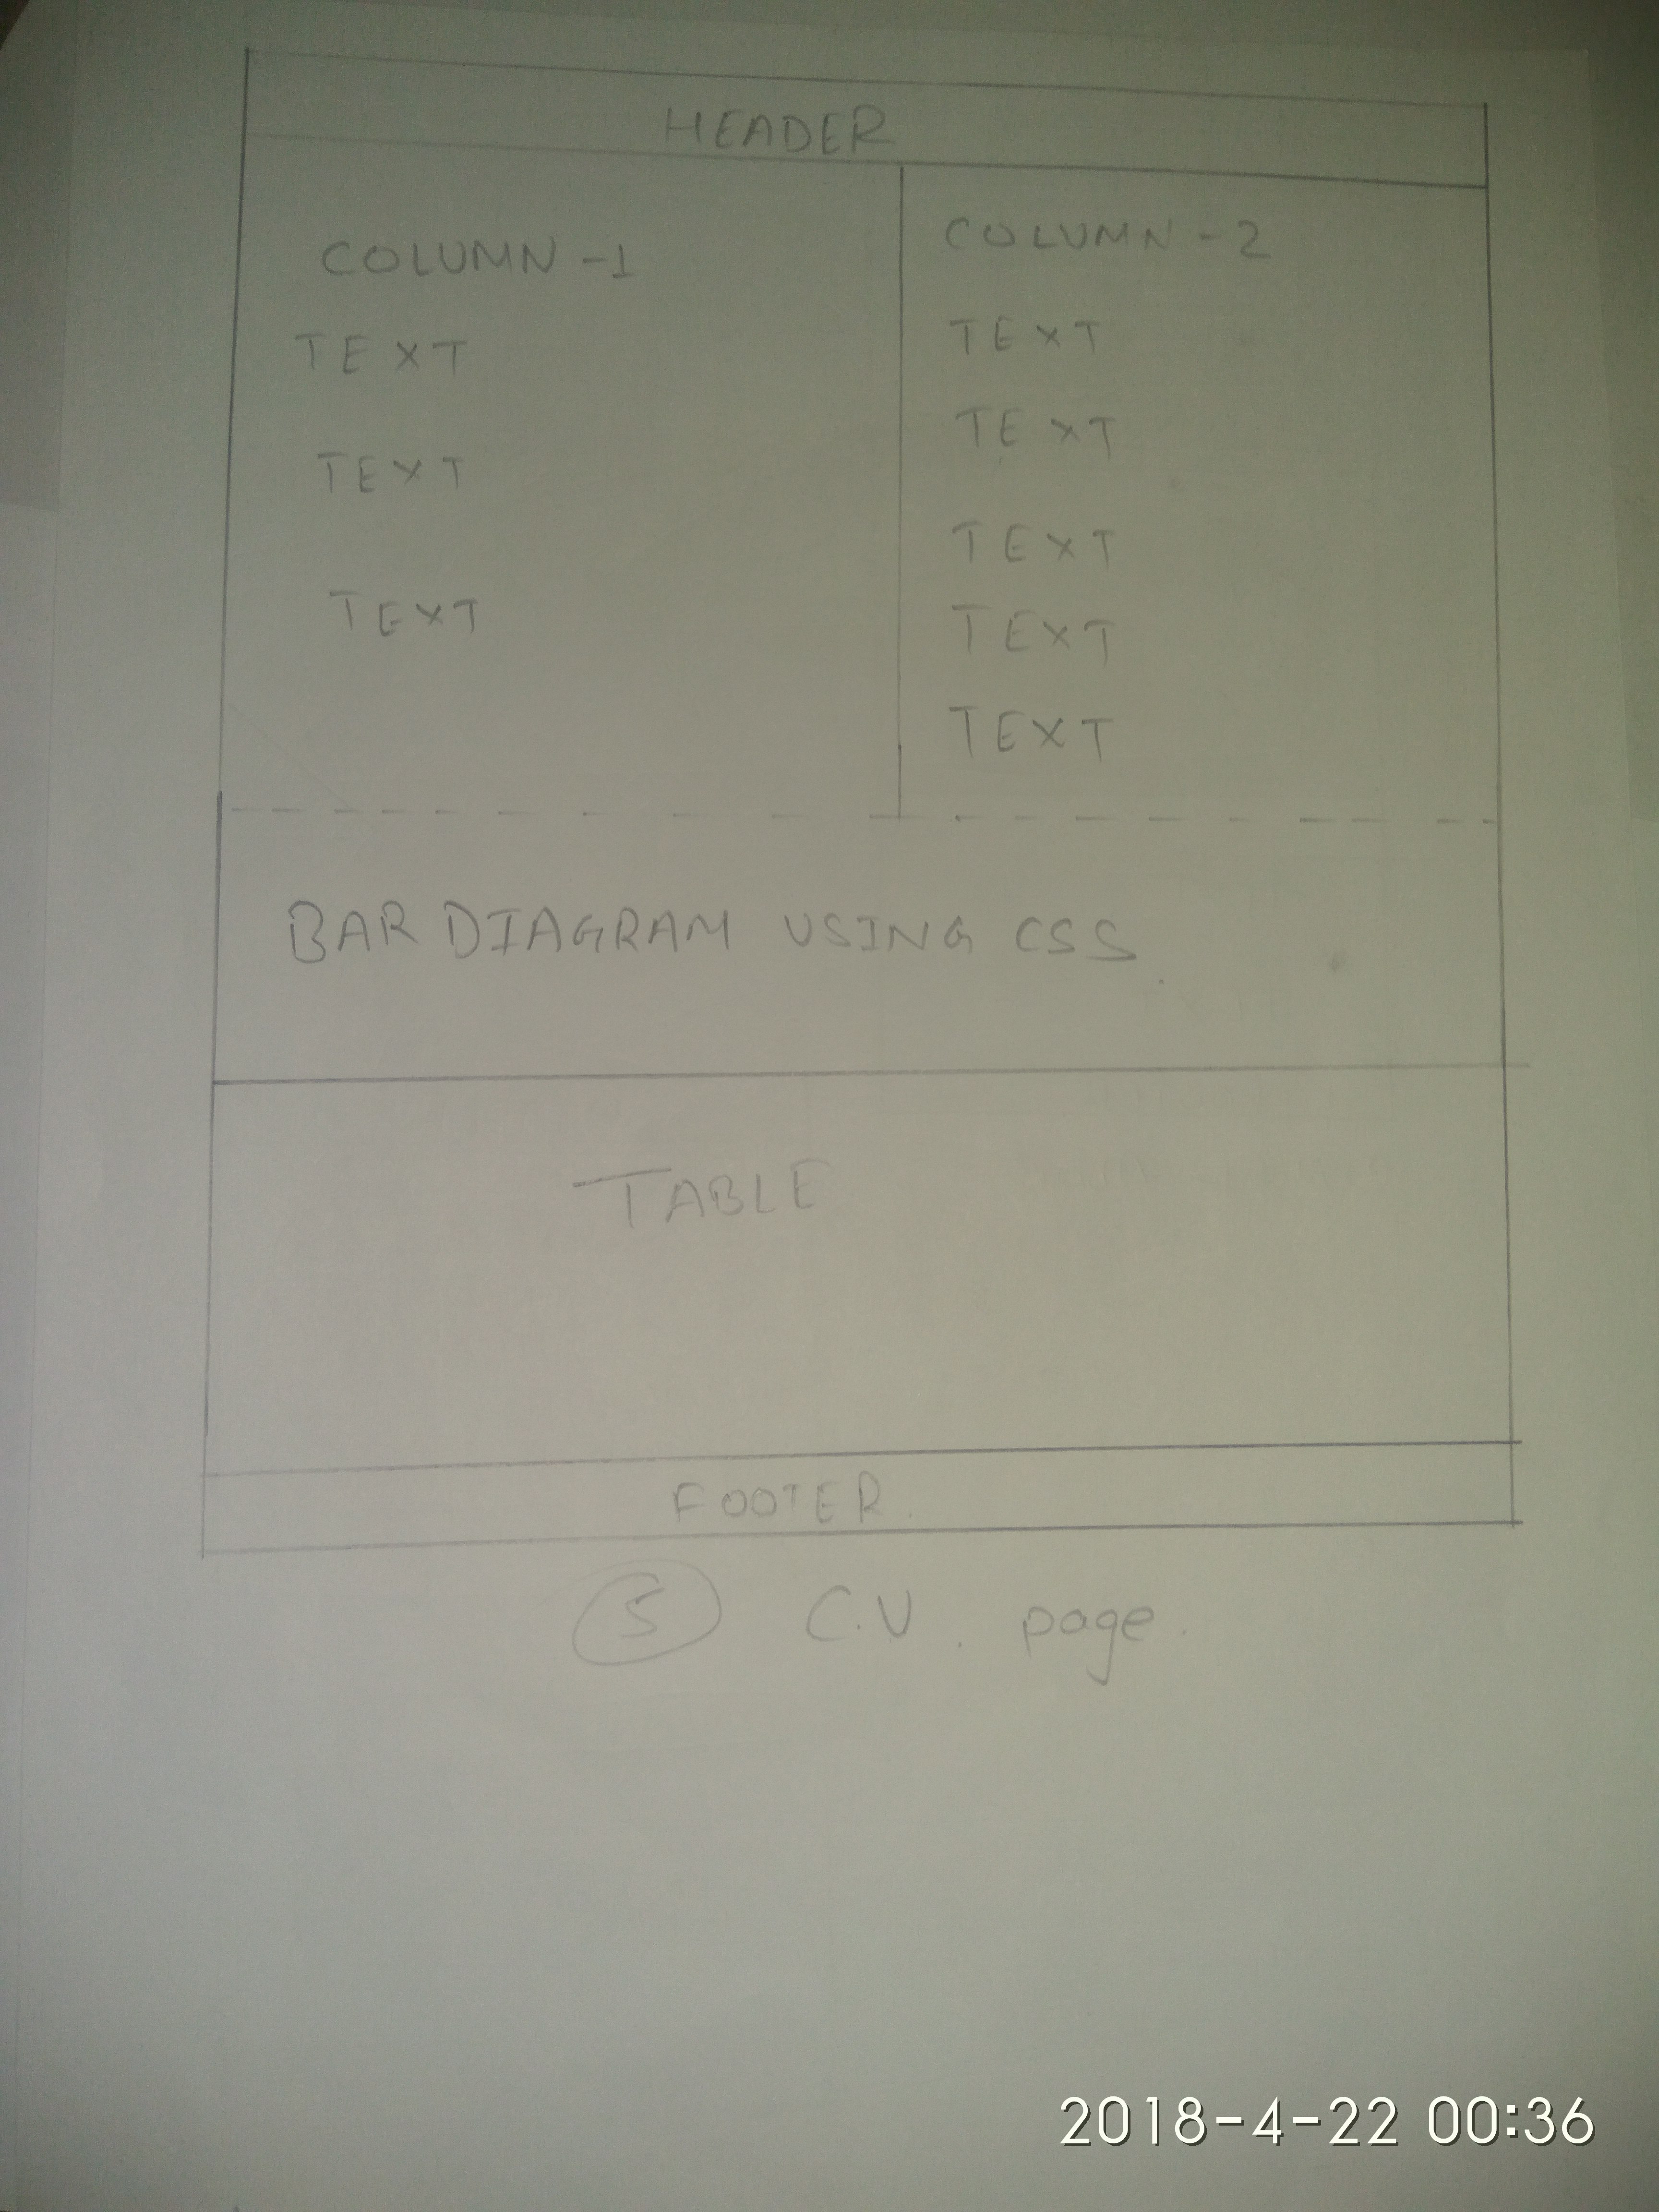 HEADER
COLUMN -1
TEXT
TEXT
TEXT
COLUMN - 2
TEXT
TEXT
TEXT
TEXT
TEXT
BAR DIAGRAM USING CSS
TABLE
FOOTER.
5 C.V. page.
2018-4-22 00:36